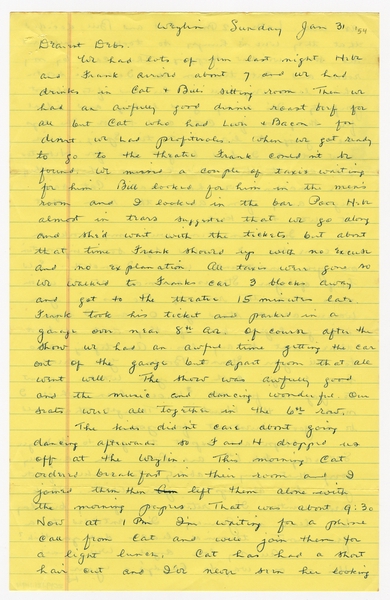 Weylin Sunday Jan 31, '54
Dearest Debs.
We had lots of fun last night. Hibz
and Frank arrived about 7 and we had
drinks in Cat & Bill's sitting room. Then we
had an awfully good dinner roast beef for
all but Cat who had Liver & Bacon - for
desert we had profiteroles. When we got ready
to go to the theatre Frank could not be
found. We missed a couple of taxis waiting
for him. Bill looked for him in the mens
room and I looked in the bar Poor Hibz
almost in tears suggested that we go along
and she'd wait with the tickets but about
that time Frank showed up with no excuse
and no explanation All taxis were gone so
we walked to Franks car 3 blocks away
and got to the theatre 15 minutes late
Frank took his ticket and parked in a
garage over near 8th Ave. Of course after the
show we had an awful time getting the car
out of the garage but apart from that all
went well. The show was awfully good
and the music and dancing wonderful Our
seats were all together in the 6th row.
The dears didn't care about going
dancing afterwards so F and H dropped us
off at the Weylin. This morning Cat
ordered breakfast in their room and I
joined them then left them alone with
the morning papers. That was about 9:30
Now at 1 PM I'm waiting for a phone
call from Cat and will join them for
a light lunch. Cat has had a short
hair cut and I've never seen her looking